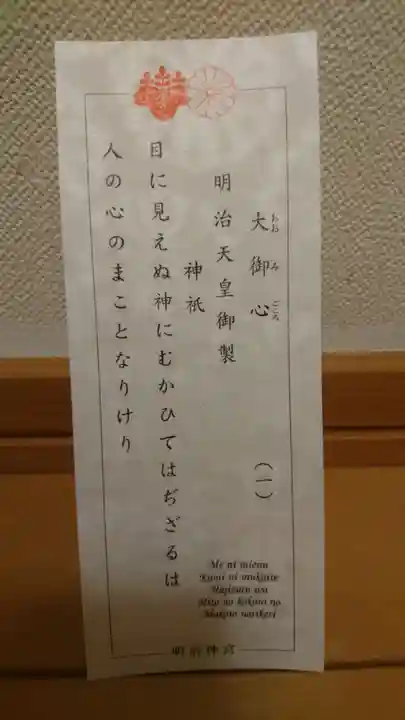 大御心
おお み ごころ
(一)
明治天皇御製
神祇
目に見えぬ神にむかひてはぢざるは
人の心のまことなりけり
Me ni mienu
Kami ni mukaite
Hajizaru wa
Hito no kokoro no
Makoto narikeri
明治神宮